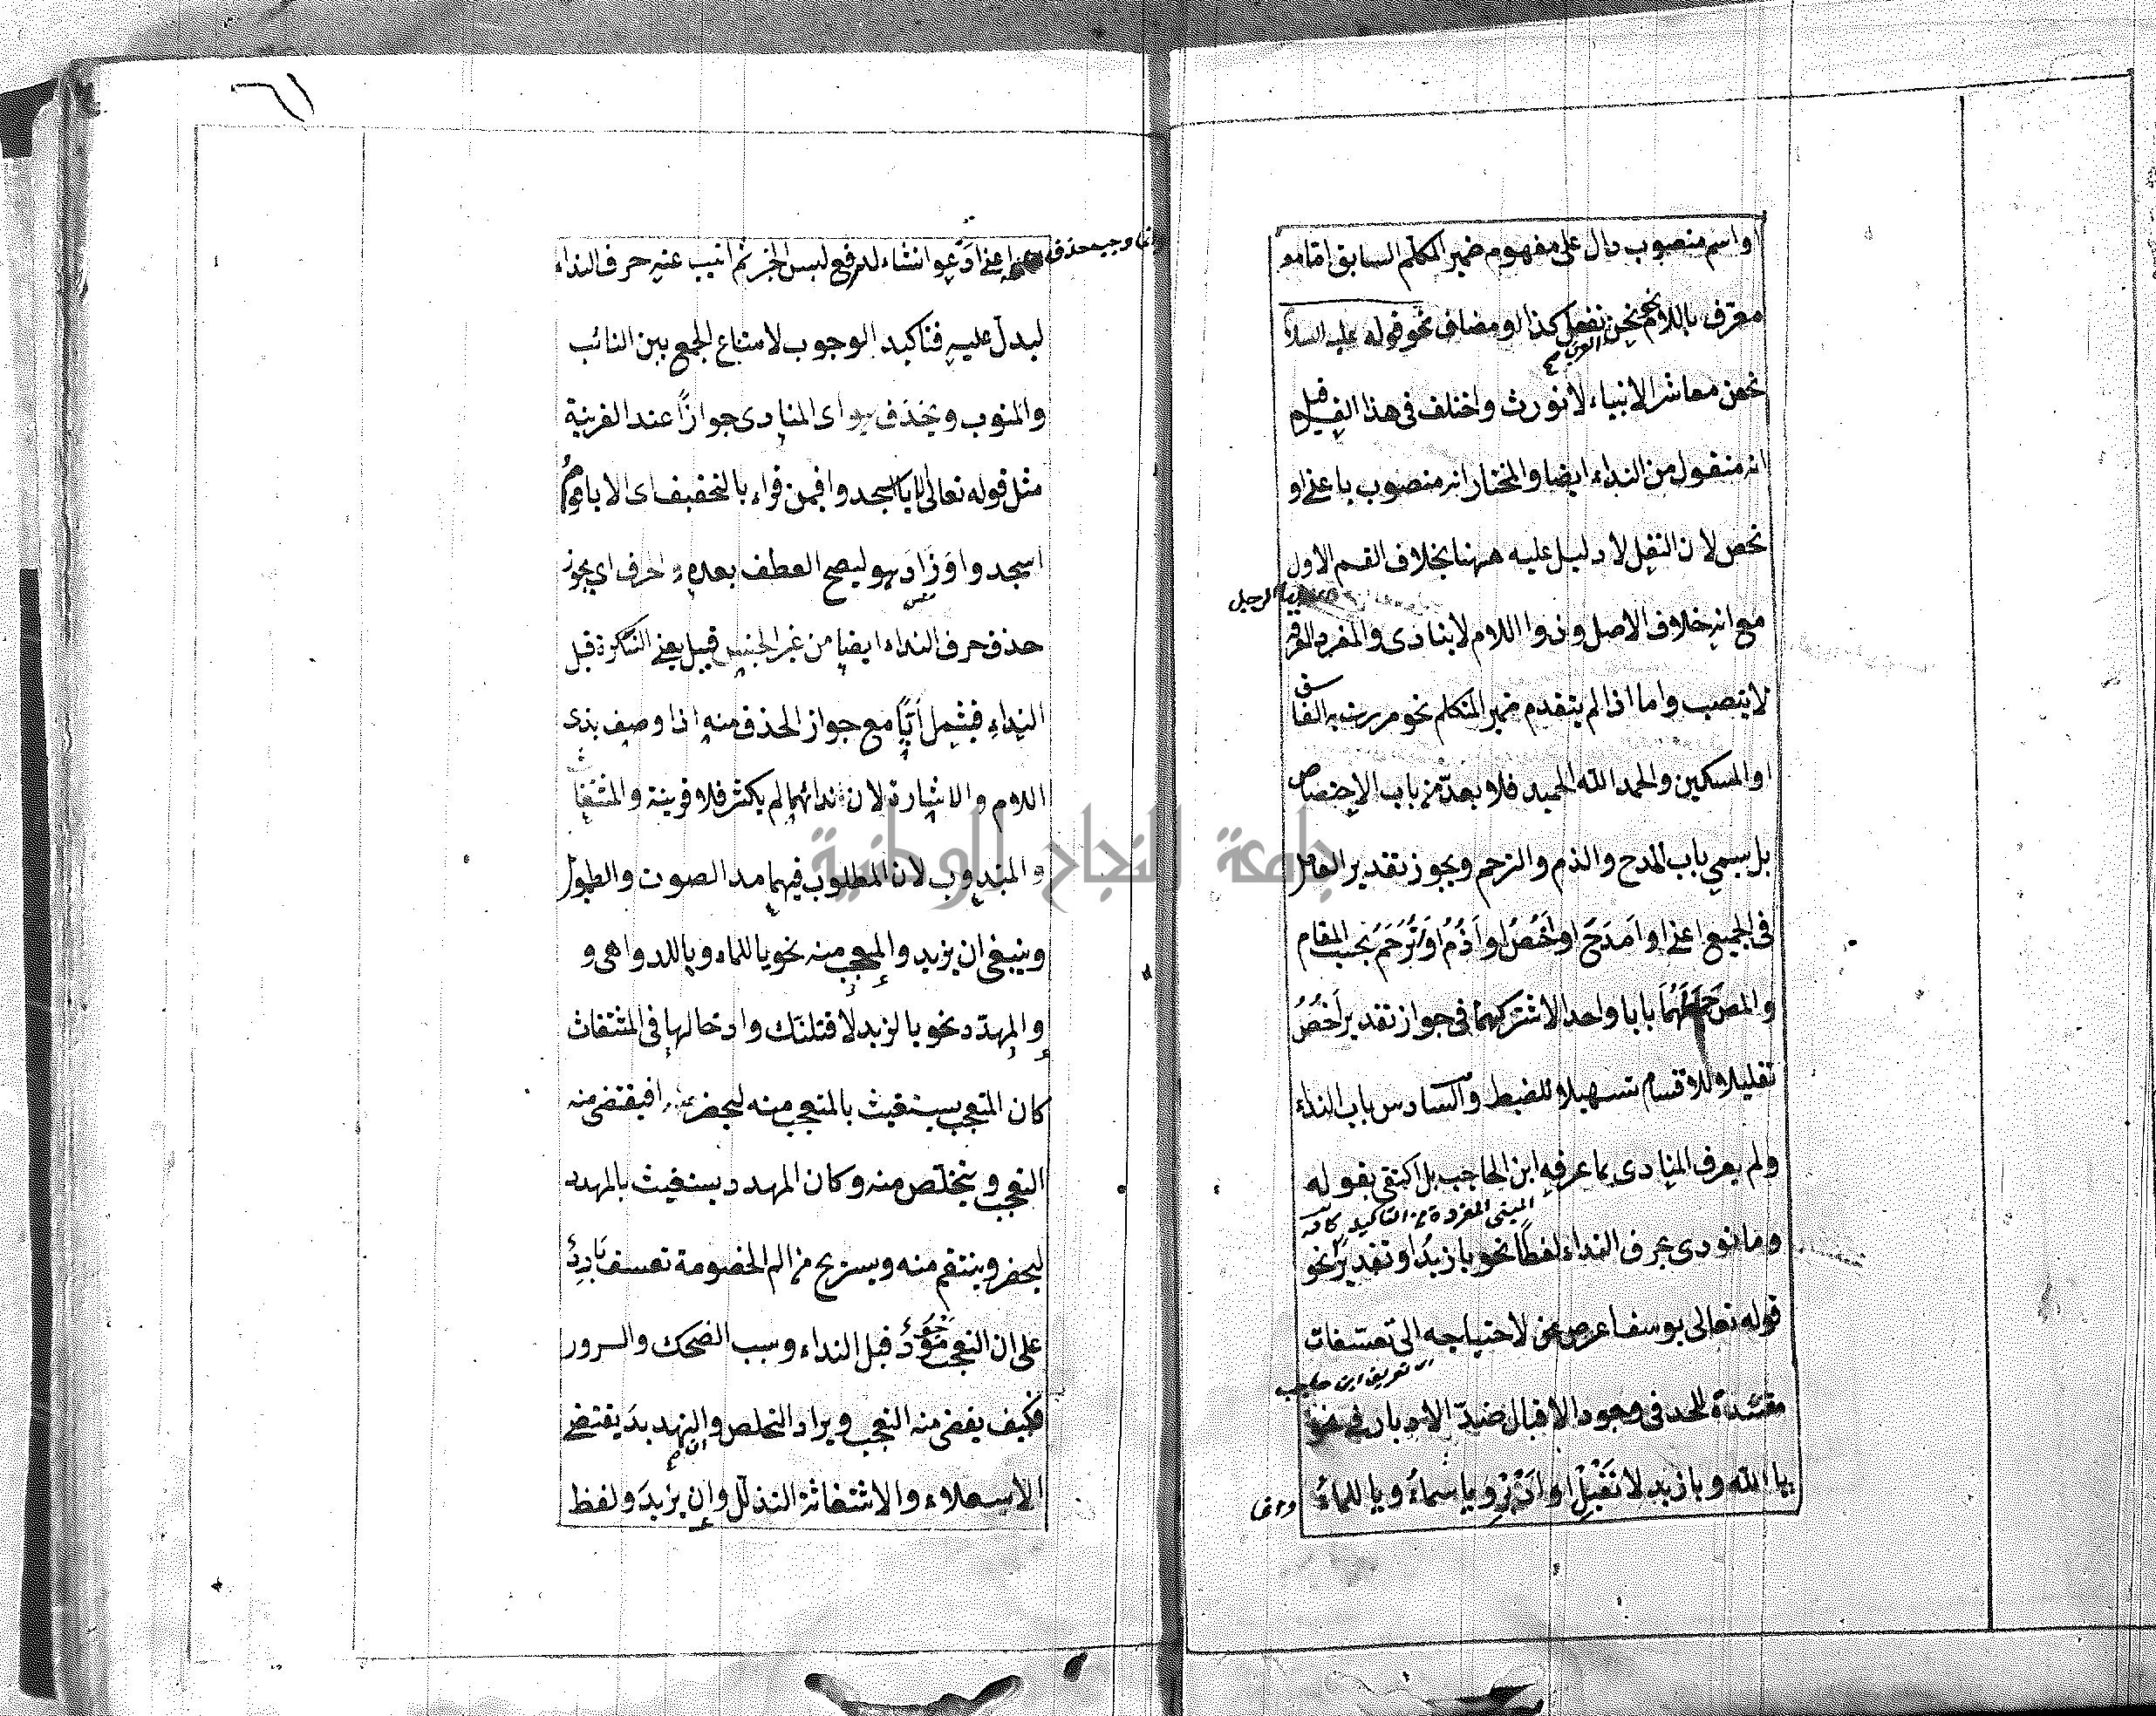 او اسم منصوب دال على مفهوم ضمير المتكلم السابق اما مع
معرّف باللام نحو نحن العرب نفعل كذا او مضاف نحو قوله عليه السلام
نحن معاشر الانبياء لا نورث واختلف فى هذا القسم قيل
انه منقول من النداء ايضا والمختار انه منصوب باعنى او
نخص لان النقل لا دليل عليه ههنا بخلاف القسم الاول
مع انه خلاف الاصل وذو اللام لا ينادى والمفرد المعرفة
يا ايها الرجل
لا ينصب واما اذا لم يتقدم ضمير المتكلم نحو مررت به الفاسق
او المسكين والحمد الله الحميد فلا يعدّ من باب الاختصاص
بل سمي باب المدح والذم والترحم ويجوز تقدير العامل
فى الجميع اعنى او اَمدَحَ او اَخُصُّ او اَذُمُّ او اَتَرَحَّمُ بحسب المقام
والمص جعلهما بابا واحدا لاشتراكهما فى جواز تقدير اَخُصُّ
تقليلا للاقسام تسهيلا للضبط والسادس باب النداء
ولم يعرف المنادى بما عرفه ابن الحاجب بل اكتفى بقوله
وما نودى بحرف النداء لفظًا نحو يا زيدُ او تقديرًا نحو
قوله تعالى يوسف اعرض عن لاحتياجه الى تعسّفات
تعريف ابن حاجب
مفسدة للحد فى وجود الاقبال ضدّ الادبار فى نحو
يا الله ويا زيد لا تُقبِل او اَدْبِر ويا سماءُ ويا للماء
وانما
وانما وجب حذف
اعنى ادعو انشاء لدفع لبس الخبر ثم انيب عنه حرف النداء
ليدلّ عليه فتاكيد الوجوب لامتناع الجمع بين النائب
والمنوب ويحذف اى المنادى جوازًا عند القرينة
مثل قوله تعالى الا يا اسجدوا فيمن قراء بالتخفيف اى الا يا قوم
اسجدوا وَزَادَ هو ليصح العطف بعده حرف اى يجوز
حذف حرف النداء ايضا من غير الجنس قيل يعنى النكرة قبل
النداء فيشمل اَيًّا مع جواز الحذف منه اذا وصف بذى
اللام والاشارة لان ندائهما لم يكثر فلا قرينة والمستغاث
والمندوب لان المطلوب فيهما مد الصوت والطول
وينبغى ان يزيد والمتعجب منه نحو يا للماء ويا للدواهى و
والمهدّد نحو يا لزيد لاقتلنك وادخالها فى المستغاث
كان المتعجب يستغيث بالمتعجب منه ليحضر فيقتضى منه
التعجب ويتخلّص منه وكان المهدد يستغيث بالمهدد
ليحضر وينتقم منه ويستريح من الم الخصومة تعسف باردٌ
على ان التعجب قبل النداء وسبب الضحك والسرور
فكيف يقضى منه التعجب ويراد التخلص والتهديد يقتضى
الاستعلاء والاستغاثة التذلّل وان يزيد ولفظ
جامعة النجاح الوطنية